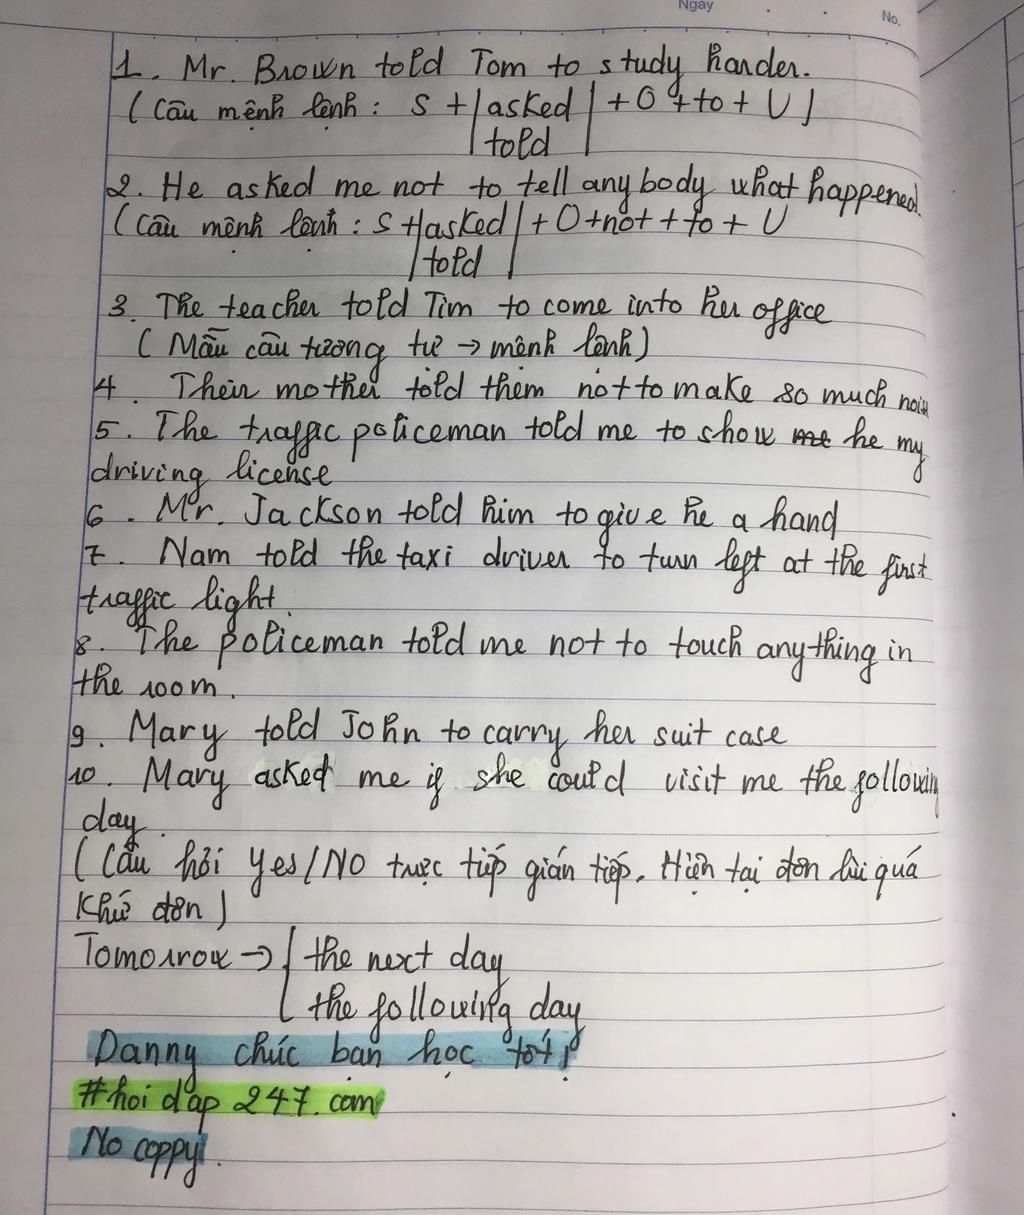 Ngày
No.
1. Mr. Brown told Tom to study harder.
( Câu mệnh lệnh : S + | asked | + O + to + V )
| told |
2. He asked me not to tell anybody what happened.
( Câu mệnh lệnh : S + | asked | + O + not + to + V
| told |
3. The teacher told Tim to come into her office
( Mẫu câu tương tự → mệnh lệnh )
4. Their mother told them not to make so much noise
5. The traffic policeman told me to show me he my
driving license
6. Mr. Jackson told him to give he a hand
7. Nam told the taxi driver to turn left at the first
traffic light.
8. The policeman told me not to touch anything in
the room.
9. Mary told John to carry her suit case
10. Mary asked me if she could visit me the following
day.
( Câu hỏi Yes/NO trực tiếp gián tiếp. Hiện tại đơn lùi quá
khứ đơn )
Tomorrow → { the next day
the following day
Danny chúc bạn học tốt !
#hoi dap 247.com
No coppy.